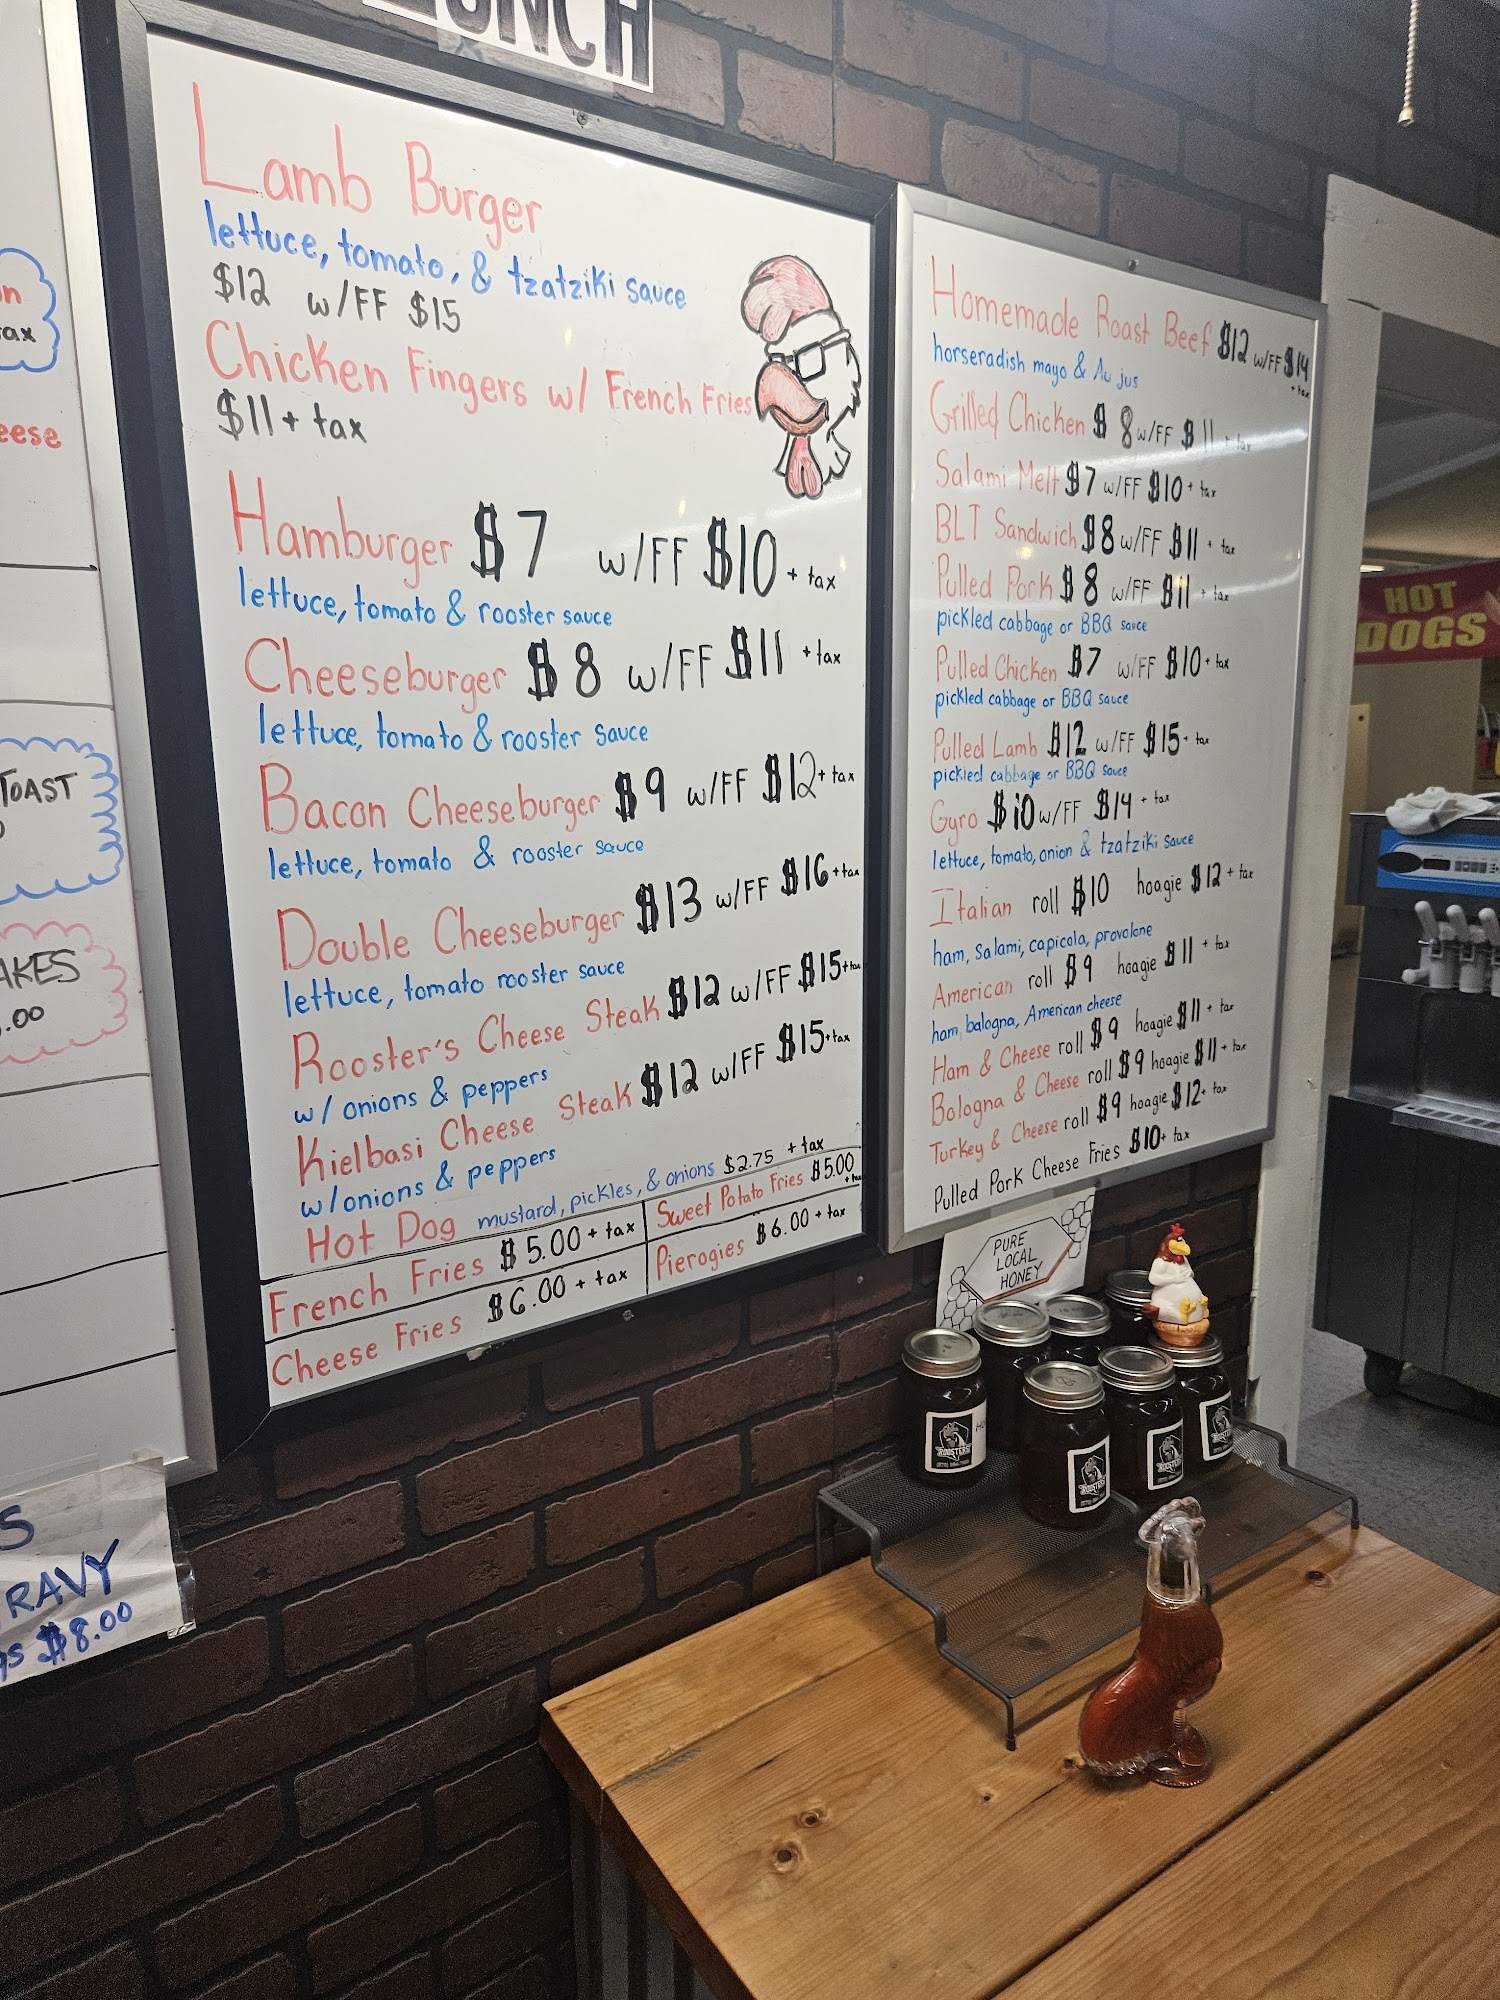 UNCH
Lamb Burger
lettuce, tomato, & tzatziki sauce
$12 w/FF $15
Chicken Fingers w/ French Fries
$11 + tax
Hamburger $7 w/FF $10 + tax
lettuce, tomato & rooster sauce
Cheeseburger $8 w/FF $11 + tax
lettuce, tomato & rooster sauce
Bacon Cheeseburger $9 w/FF $12 + tax
lettuce, tomato & rooster sauce
Double Cheeseburger $13 w/FF $16 + tax
lettuce, tomato rooster sauce
Rooster's Cheese Steak $12 w/FF $15 + tax
w/ onions & peppers
Kielbasi Cheese Steak $12 w/FF $15 + tax
w/onions & peppers
Hot Dog mustard, pickles, & onions $2.75 + tax
French Fries $5.00 + tax
Sweet Potato Fries $5.00 + tax
Cheese Fries $6.00 + tax
Pierogies $6.00 + tax
Homemade Roast Beef $12 w/FF $14 + tax
horseradish mayo & Au jus
Grilled Chicken $8 w/FF $11 + tax
Salami Melt $7 w/FF $10 + tax
BLT Sandwich $8 w/FF $11 + tax
Pulled Pork $8 w/FF $11 + tax
pickled cabbage or BBQ sauce
Pulled Chicken $7 w/FF $10 + tax
pickled cabbage or BBQ sauce
Pulled Lamb $12 w/FF $15 + tax
pickled cabbage or BBQ sauce
Gyro $10 w/FF $14 + tax
lettuce, tomato, onion & tzatziki sauce
Italian roll $10 hoagie $12 + tax
ham, salami, capicola, provolone
American roll $9 hoagie $11 + tax
ham, balogna, American cheese
Ham & Cheese roll $9 hoagie $11 + tax
Bologna & Cheese roll $9 hoagie $11 + tax
Turkey & Cheese roll $9 hoagie $12 + tax
Pulled Pork Cheese Fries $10 + tax
PURE
LOCAL
HONEY
HOT
DOGS
ROOSTERS
ROOSTERS
ROOSTERS
ROOSTERS
on
tax
eese
TOAST
AKES
.00
S
RAVY
gs $8.00